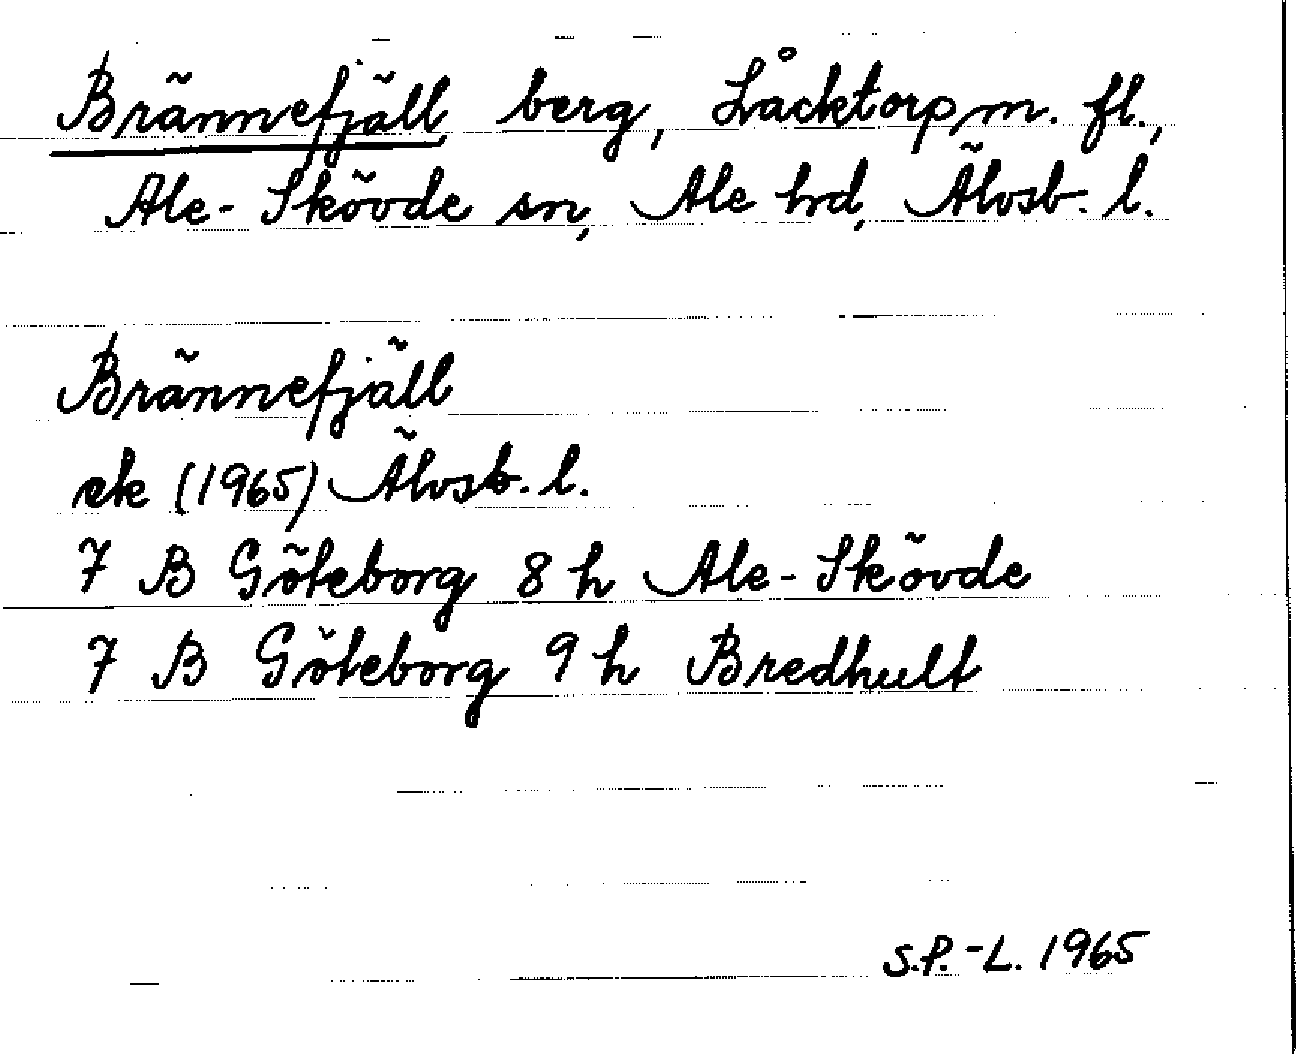 Brännefjäll, berg, Låcktorp m. fl.,
Ale-Skövde sn, Ale hrd, Älvsb. l.
Brännefjäll
ek (1965) Älvsb. l.
7 B Göteborg 8 h Ale-Skövde
7 B Göteborg 9 h Bredhult
S.P.-L. 1965